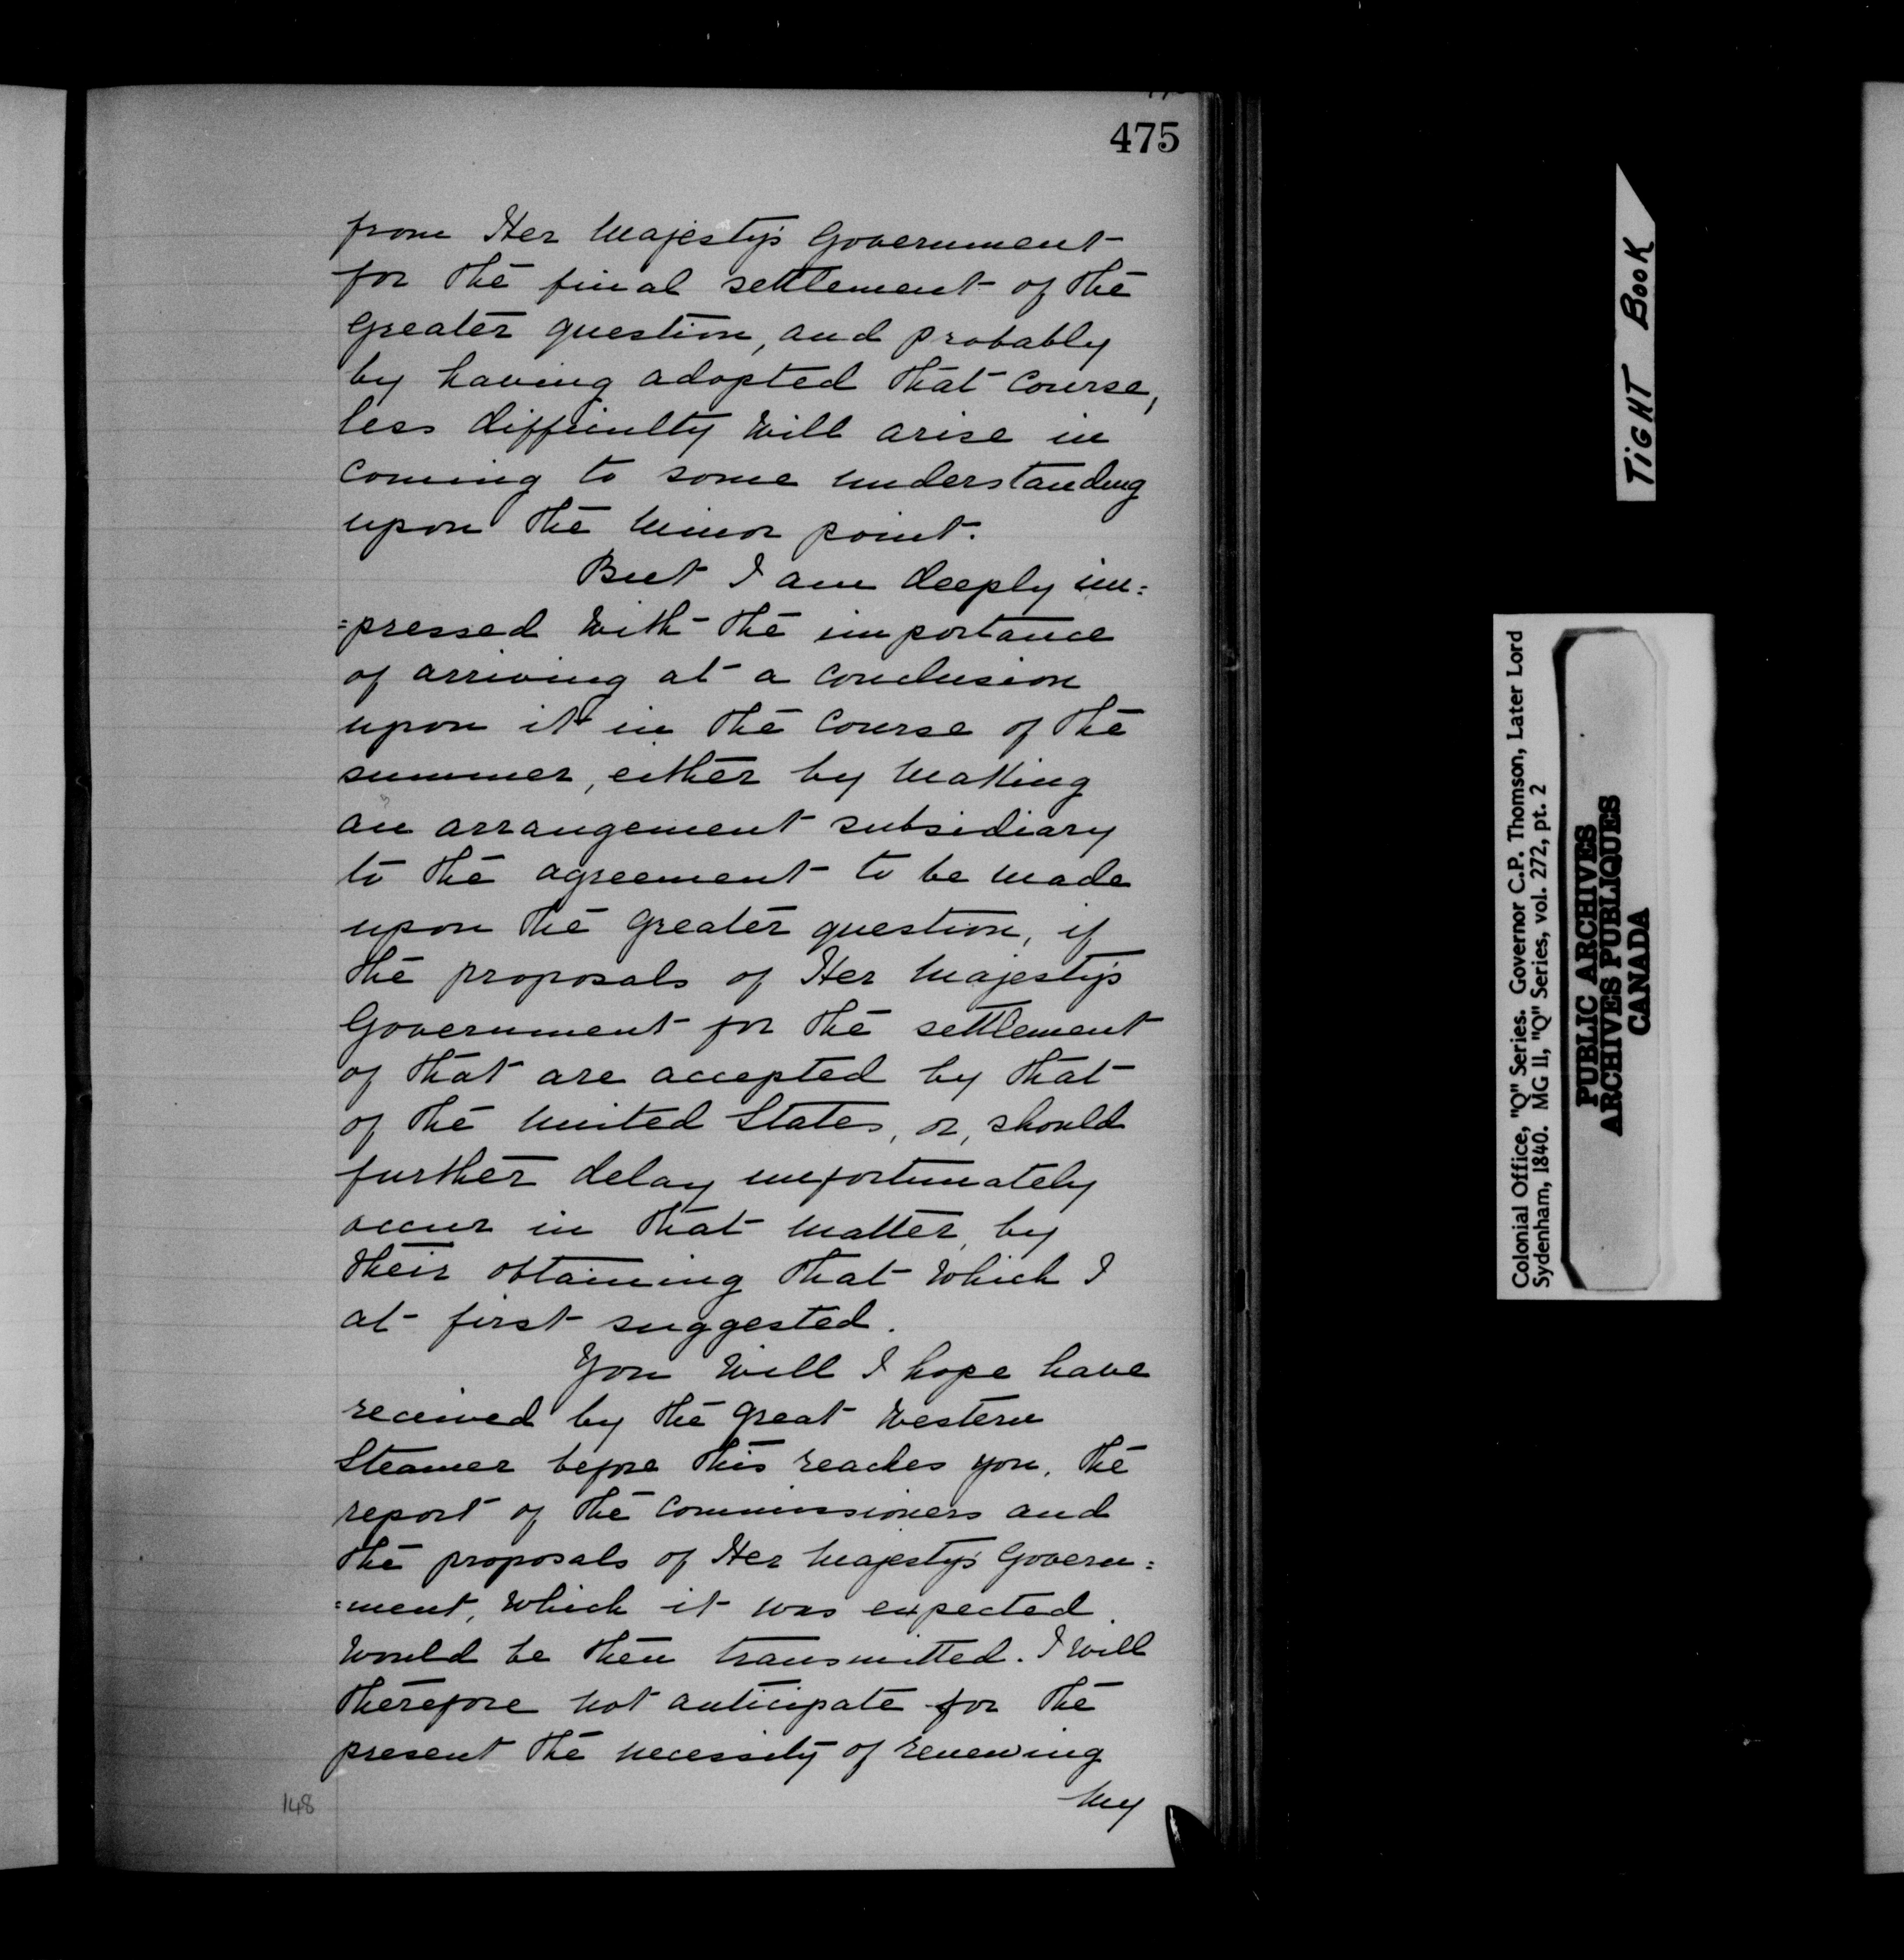 475
from Her Majesty's Government
for the final settlement of the
greater question, and probably
by having adopted that course,
less difficulty will arise in
coming to some understanding
upon the minor point.
But I am deeply im=
=pressed with the importance
of arriving at a conclusion
upon it in the course of the
summer, either by making
an arrangement subsidiary
to the agreement to be made
upon the greater question, if
the proposals of Her Majesty's
Government for the settlement
of that are accepted by that
of the United States, or, should
further delay unfortunately
occur in that matter, by
their obtaining that which I
at first suggested.
You will I hope have
received by the Great Western
Steamer before this reaches you, the
report of the Commissioners and
the proposals of Her Majesty's Govern=
=ment, which it was expected
would be then transmitted. I will
therefore not anticipate for the
present the necessity of renewing
my
148
TIGHT BOOK
Colonial Office, "Q" Series. Governor C.P. Thomson, Later Lord
Sydenham, 1840. MG 11, "Q" Series, vol. 272, pt. 2
PUBLIC ARCHIVES
ARCHIVES PUBLIQUES
CANADA